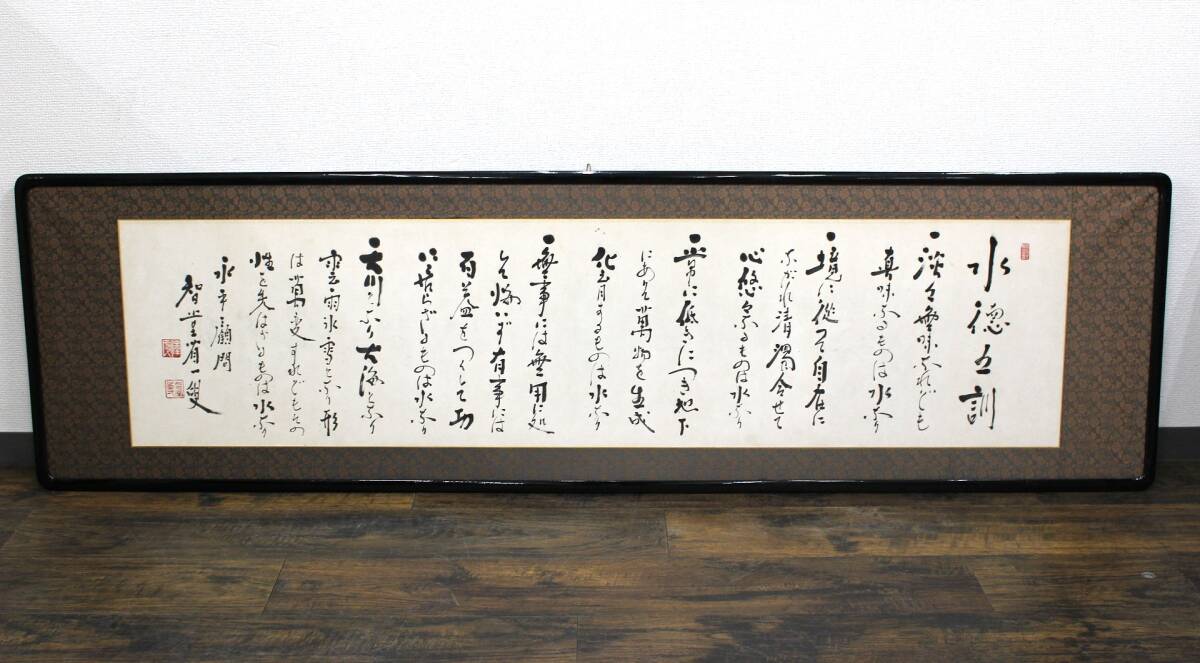 水徳五訓
一淡々無味なれども
真味なるものは水なり
一境に従つて自在に
ながれ清濁合せて
心悠々なるものは水なり
一常に低きにつき地下
にありて萬物を生成
化育するものは水なり
一無事には無用に処
して悔いず有事には
百益をつくして功
に居らざるものは水なり
一大川となり大海となり
雲雨氷雪となり形
は萬変すれどもその
性を失はざるものは水なり
永平顧問
智堂省一叟